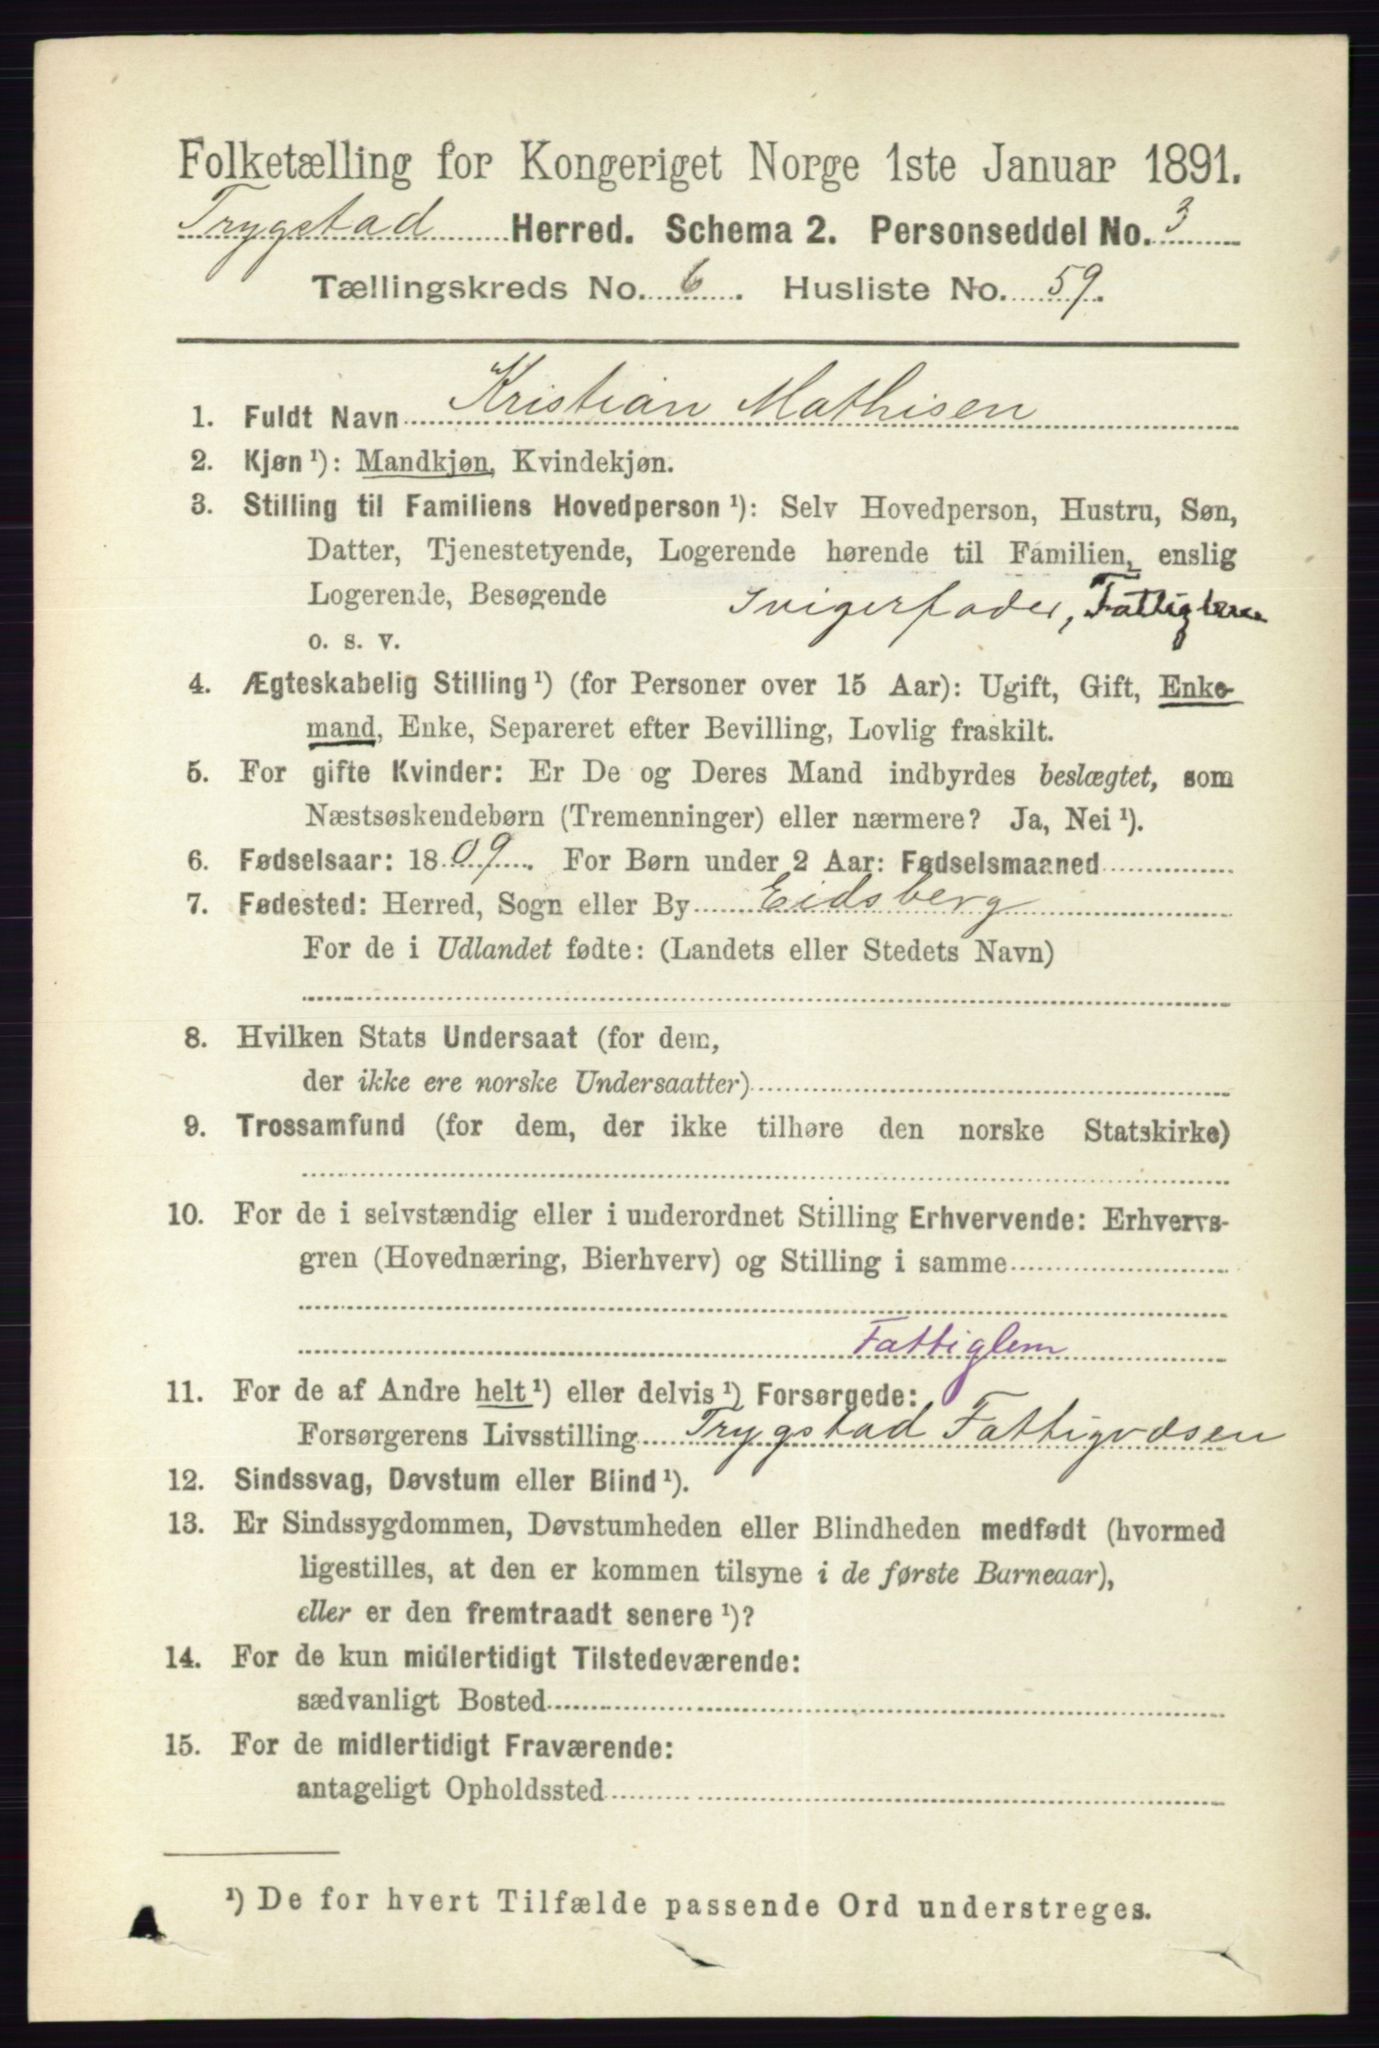 Folketælling for Kongeriget Norge 1ste Januar 1891.
Trygstad Herred. Schema 2. Personseddel No. 3
Tællingskreds No. 6. Husliste No. 59.
1. Fuldt Navn Kristian Mathisen
2. Kjøn ¹): Mandkjøn, Kvindekjøn.
3. Stilling til Familiens Hovedperson ¹): Selv Hovedperson, Hustru, Søn,
Datter, Tjenestetyende, Logerende hørende til Familien, enslig
Logerende, Besøgende Svigerfader, Fattiglem
o. s. v.
4. Ægteskabelig Stilling ¹) (for Personer over 15 Aar): Ugift, Gift, Enke-
mand, Enke, Separeret efter Bevilling, Lovlig fraskilt.
5. For gifte Kvinder: Er De og Deres Mand indbyrdes beslægtet, som
Næstsøskendebørn (Tremenninger) eller nærmere? Ja, Nei ¹).
6. Fødselsaar: 1809. For Børn under 2 Aar: Fødselsmaaned
7. Fødested: Herred, Sogn eller By Eidsberg
For de i Udlandet fødte: (Landets eller Stedets Navn)
8. Hvilken Stats Undersaat (for dem,
der ikke ere norske Undersaatter)
9. Trossamfund (for dem, der ikke tilhøre den norske Statskirke)
10. For de i selvstændig eller i underordnet Stilling Erhvervende: Erhvervs-
gren (Hovednæring, Bierhverv) og Stilling i samme
Fattiglem
11. For de af Andre helt ¹) eller delvis ¹) Forsørgede:
Forsørgerens Livsstilling Trygstad Fattigvæsen
12. Sindssvag, Døvstum eller Blind ¹).
13. Er Sindssygdommen, Døvstumheden eller Blindheden medfødt (hvormed
ligestilles, at den er kommen tilsyne i de første Barneaar),
eller er den fremtraadt senere ¹)?
14. For de kun midlertidigt Tilstedeværende:
sædvanligt Bosted
15. For de midlertidigt Fraværende:
antageligt Opholdssted
¹) De for hvert Tilfælde passende Ord understreges.